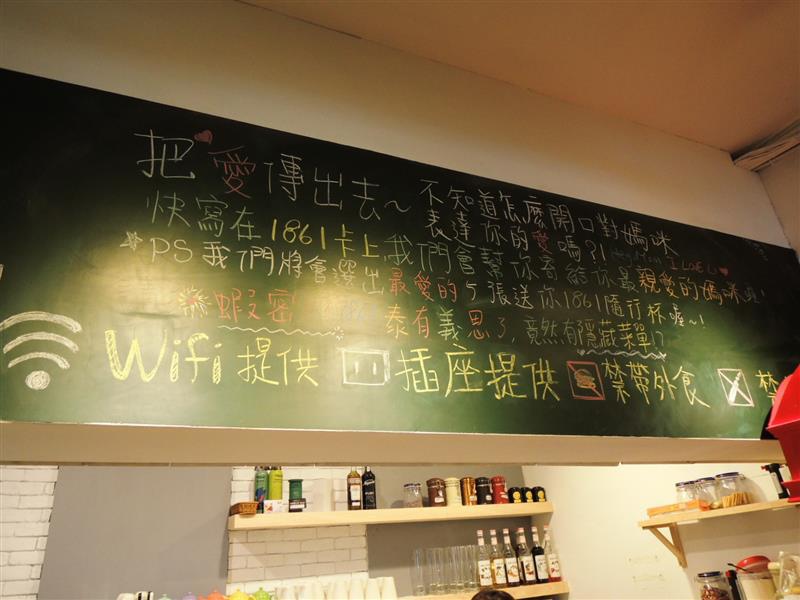 把愛傳出去~不知道怎麼開口對媽咪
表達你的愛嗎?! Hey Mom I LOVE U
快寫在1861卡上我們會幫你寄給你最親愛的媽咪喔!
PS我們將會選出最愛的5張送你1861隨行杯喔~!
蝦密
泰有義思了,竟然有隱藏菜單!?
Wifi提供 插座提供 禁帶外食 禁